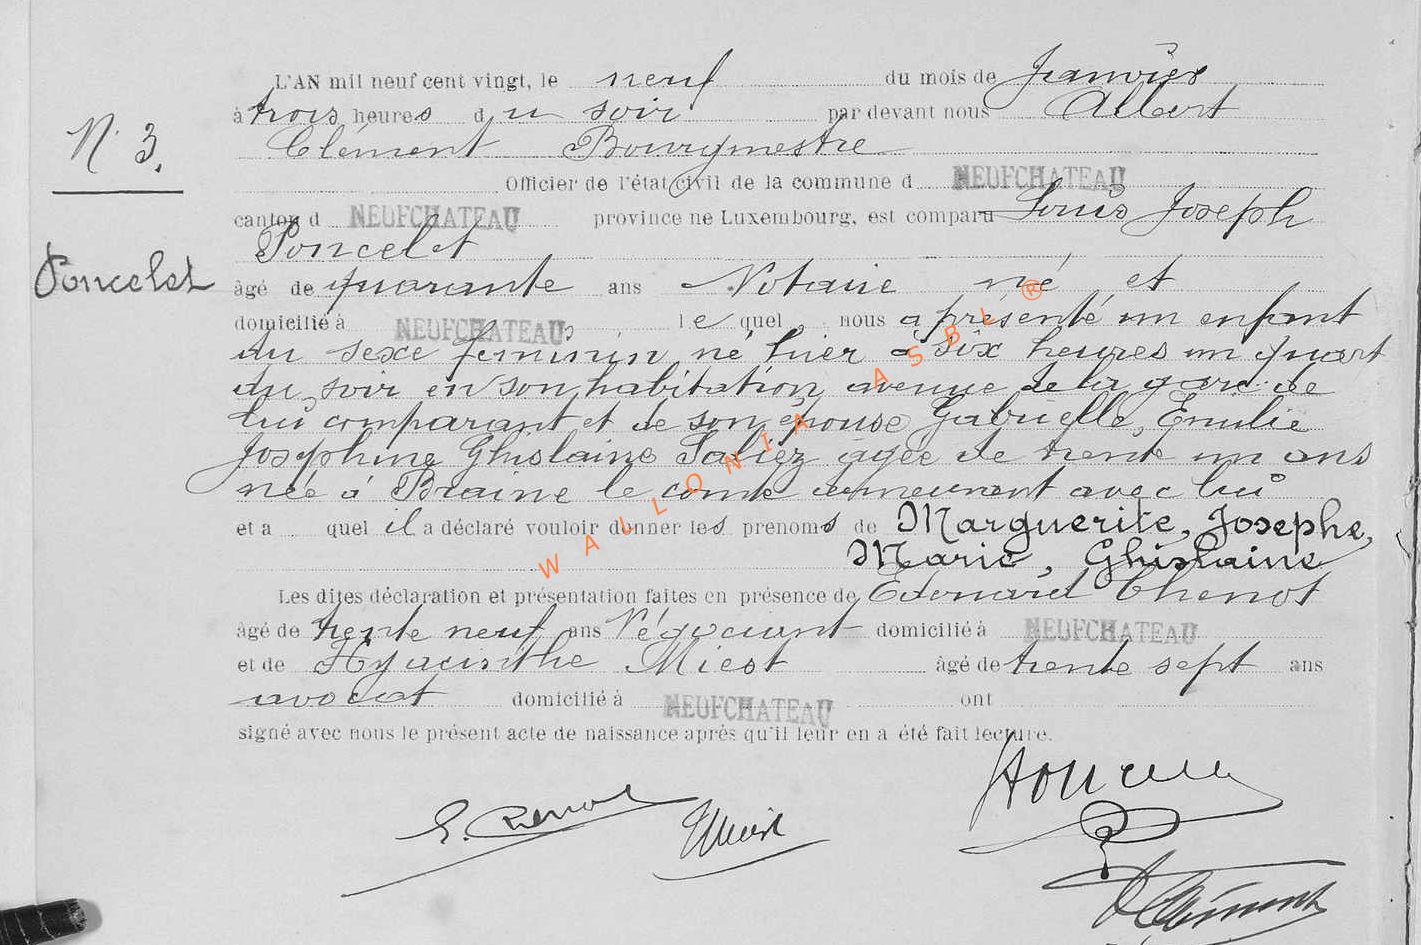 L'AN mil neuf cent vingt, le neuf du mois de Janvier
à trois heures du soir par devant nous Albert
N° 3.
Clément Bourgmestre
Officier de l'état civil de la commune d NEUFCHATEAU
canton d NEUFCHATEAU province de Luxembourg, est comparu Louis Joseph
Poncelet
Poncelet
âgé de quarante ans Notaire né et
domicilié à NEUFCHATEAU, lequel nous a présenté un enfant
du sexe féminin, né hier à six heures un quart
du soir en son habitation avenue de la gare de
lui comparant et de son épouse Gabrielle, Emilie
Josephine Ghislaine Saliez âgée de trente un ans
née à Braine le comte demeurant avec lui
et a quel il a déclaré vouloir donner les prénoms de Marguerite, Josephe,
Marie, Ghislaine
Les dites déclaration et présentation faites en présence de Edouard Chenot
âgé de trente neuf ans Négociant domicilié à NEUFCHATEAU
et de Hyacinthe Miest âgé de trente sept ans
avocat domicilié à NEUFCHATEAU ont
signé avec nous le présent acte de naissance après qu'il leur en a été fait lecture.
E. Chenot
WALLONIA ASBL ®